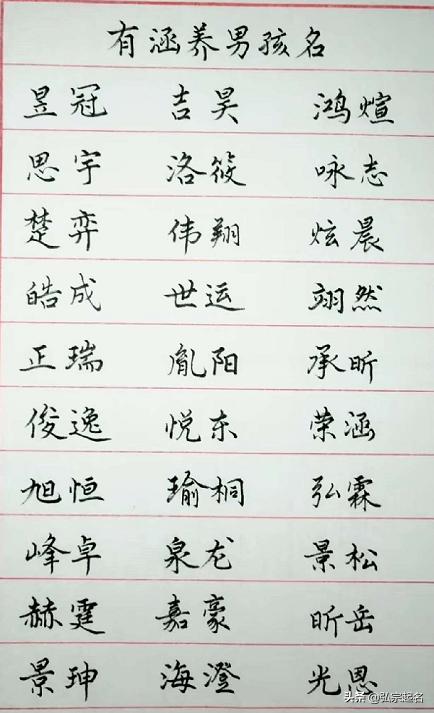 有涵养男孩名
昱冠 吉昊 鸿煊
思宇 洛筱 咏志
楚弈 伟翔 炫晨
皓成 世运 翊然
正瑞 胤阳 承昕
俊逸 悦东 荣涵
旭恒 瑜桐 弘霖
峰卓 泉龙 景松
赫霆 嘉豪 昕岳
景珅 海澄 光恩
头条 @弘宗起名